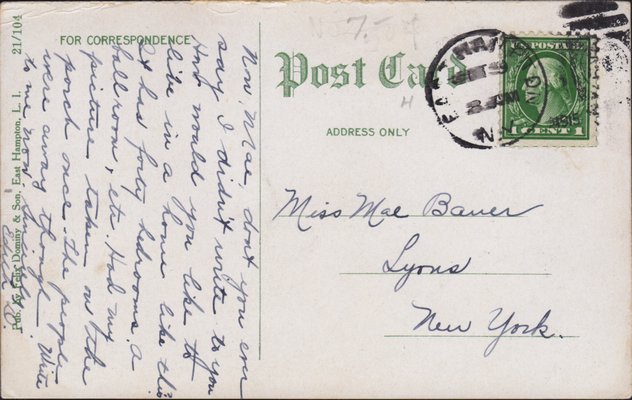 7.50
FOR CORRESPONDENCE
Post Card
H
ADDRESS ONLY
21/104
Pub. by Felix Dominy & Son, East Hampton, L. I.
EAST HAMPTON
N.Y.
U.S. POSTAGE
1 CENT 1
Now, Mae, don't you ever
say I didn't write to you
How would you like to
live in a home like this
It has forty bedrooms, a
ballroom, etc. Had my
picture taken on the
porch once. The people
were away though. Write
to me now
Edith
Miss Mae Bauer
Lyons
New York.